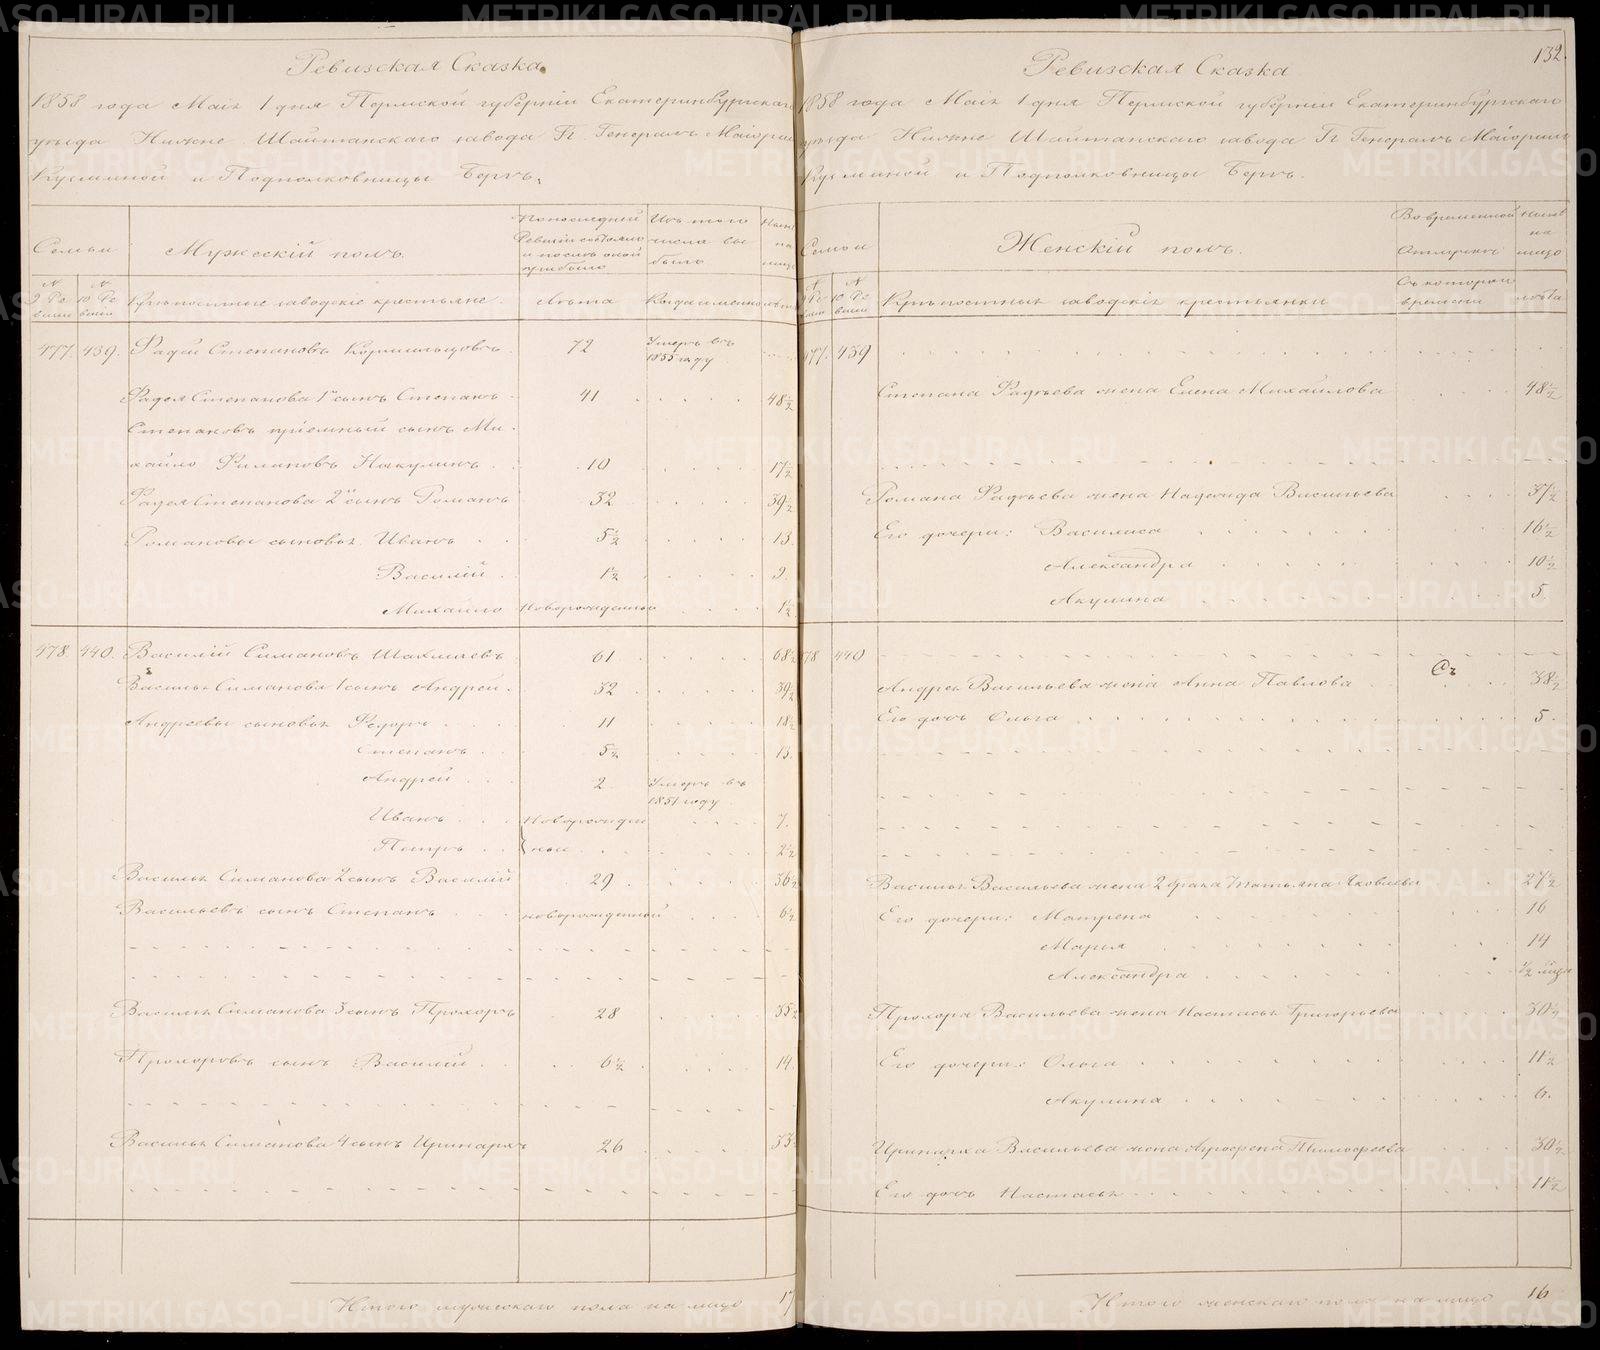 Ревизская Сказка
1858 года Маія 1 дня Пермской губерніи Екатеринбургскаго
уезда Нижне Шайтанскаго завода Гг. Генералъ Маіорши
Кузминой и Подполковницы Бергъ.
Семьи
Мужескій полъ.
По последней Ревизіи состояло и после оной прибыло
Изъ того числа выбыло
Ныне на лицо
№ 9 Ре визіи
№ 10 Ре визіи
Крепостные заводскіе крестьяне.
Лета
Когда именно
лета
477. 439. Фадей Степановъ Кормильцовъ 72 Умеръ въ 1855 году
Фадея Степанова 1й сынъ Степанъ 41 48½
Степановъ пріемный сынъ Ми-
хайло Филиповъ Никулинъ 10 17½
Фадея Степанова 2й сынъ Романъ 32 39½
Романовы сыновья Иванъ 5½ 13.
Василій 1½ 9.
Михайло Новорожденный 1½
478. 440. Василій Симановъ Шахмаевъ 61 68½
Василья Симанова 1 сынъ Андрей 32 39½
Андреевы сыновья Федоръ 11 18½
Степанъ 5½ 13.
Андрей 2 Умеръ въ 1851 году
Иванъ Новорожден 7.
Петръ ные 2½
Василья Симанова 2 сынъ Василій 29 36½
Васильевъ сынъ Степанъ новорожденной 6½
Василья Симанова 3 сынъ Прохоръ 28 35½
Прохоровъ сынъ Василій 6½ 14.
Василья Симанова 4 сынъ Иринархъ 26 33½
Итого мужескаго пола на лицо 17
132.
Ревизская Сказка
1858 года Маія 1 дня Пермской губерніи Екатеринбургскаго
уезда Нижне Шайтанскаго завода Гг Генералъ Маіорши
Кузминой и Подполковницы Бергъ.
Семьи
Женскій полъ.
Во временной отлучке
Ныне на лицо
№ 9 Ре визіи
№ 10 Ре визіи
Крепостныя заводскія крестьянки
Съ котораго времени
лета
477. 439
Степана Фадеева жена Елена Михайлова 48½
Романа Фадеева жена Надежда Васильева 37½
Его дочери: Василиса 16½
Александра 10½
Акулина 5.
478 440
Андрея Васильева жена Анна Павлова 38½
Его дочь Ольга 5.
Василья Васильева жена 2 брака Татьяна Яковлева 27½
Его дочери: Матрена 16
Марья 14
Александра ½
Прохора Васильева жена Настасья Григорьева 30½
Его дочери: Ольга 11½
Акулина 6.
Иринарха Васильева жена Агрофена Тимофеева 30½
Его дочь Настасья 11½
Итого женскаго пола на лицо 16
METRIKI.GASO-URAL.RU